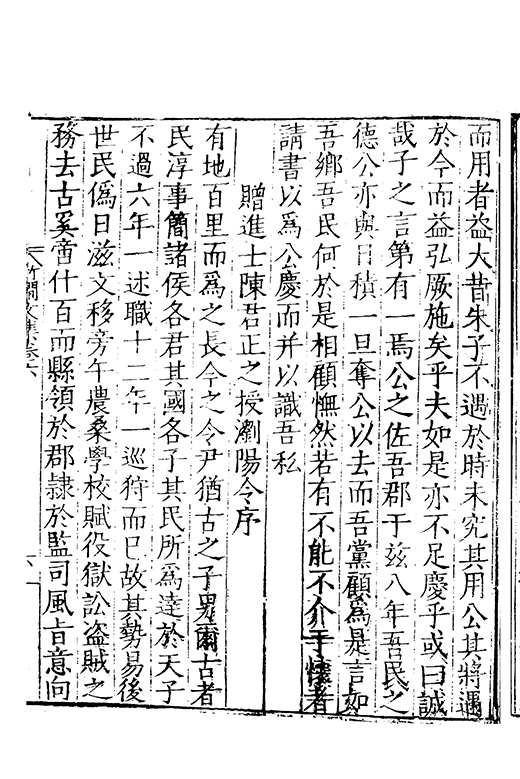 而用者益大昔朱子不遇於時未究其用公其將遇
於今而益弘厥施矣乎夫如是亦不足慶乎或曰誠
哉子之言第有一焉公之佐吾郡于兹八年吾民之
德公亦與日積一旦奪公以去而吾黨顧為是言如
吾鄉吾民何於是相顧憮然若有不能不介于懷者
請書以為公慶而并以識吾私
贈進士陳君正之授瀏陽令序
有地百里而為之長今之令尹猶古之子男爾古者
民淳事簡諸侯各君其國各子其民所為達於天子
不過六年一述職十二年一巡狩而巳故其勢易後
世民偽日滋文移旁午農桑學校賦役獄訟盗賊之
務去古奚啻什百而縣領於郡隷於監司風旨意向
竹澗文集卷六
六